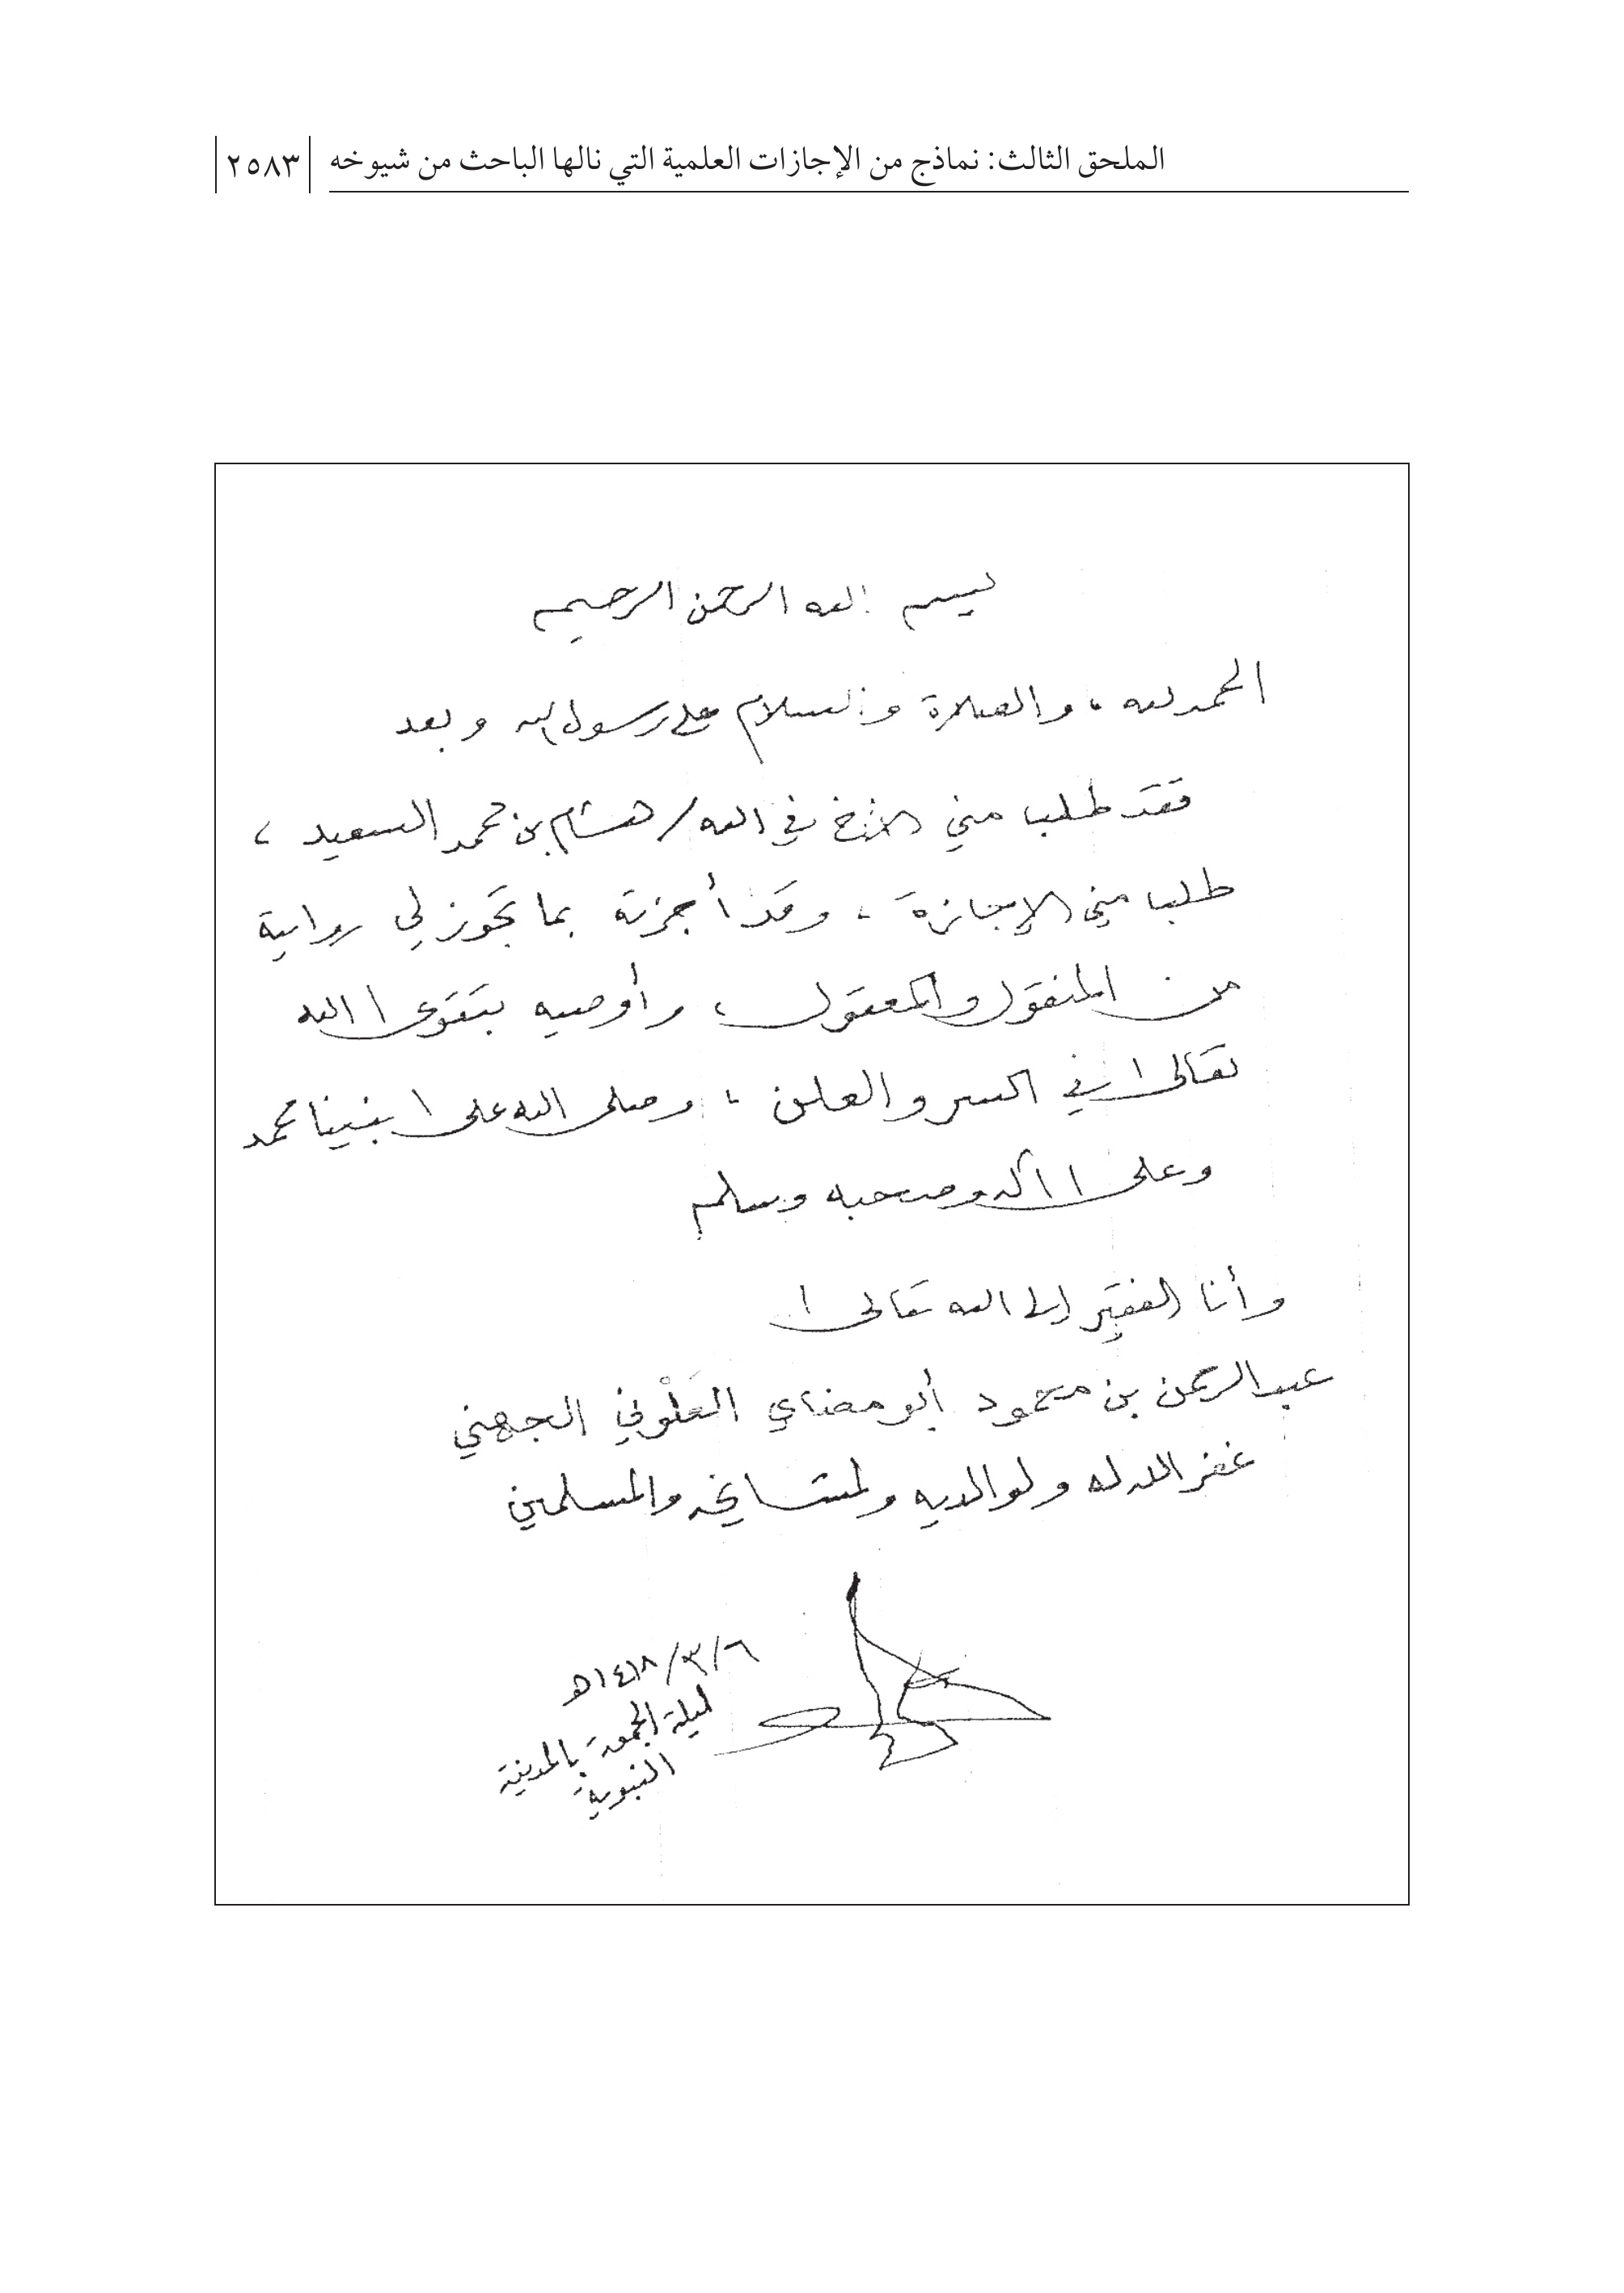 الملحق الثالث: نماذج من الإجازات العلمية التي نالها الباحث من شيوخه ٢٥٨٣
بسم الله الرحمن الرحيم
الحمد لله ، والصلاة والسلام على رسول الله وبعد
فقد طلب مني الأخ في الله / هشام بن محمد السعيد ،
طلب مني الإجازة ، وقد أجزته بما تجوز لي روايته
من المنقول والمعقول ، وأوصيه بتقوى الله
تعالى في السر والعلن ، وصلى الله على نبينا محمد
وعلى آله وصحبه وسلم
وأنا الفقير إلى الله تعالى
عبد الرحمن بن محمود أبو مضاي العَلْوني الجهني
غفر الله له ولوالديه ولمشايخه والمسلمين
٦/٣/١٤١٨هـ
ليلة الجمعة بالمدينة
النبوية